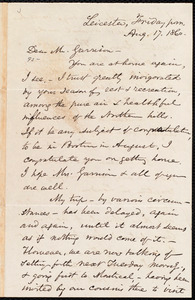 Leicester, Friday p.m.
Aug. 17, 1860.
Dear Mr. Garrison –
You are at home again,
I see, – I trust greatly invigorated
by your season of rest & recreation,
among the pure air & healthful
influences of the Northern hills.
If it be any subject of congratulation,
to be in Boston in August, I
congratulate you on getting home.
I hope Mrs. Garrison & all of you
are well.
My trip – by various circum-
stances – has been delayed, again
and again, until it almost seems
as if nothing would come of it. –
However, we are now talking of
setting forth next Tuesday morng,
& going first to Montreal, – having been
invited by our cousins there to visit